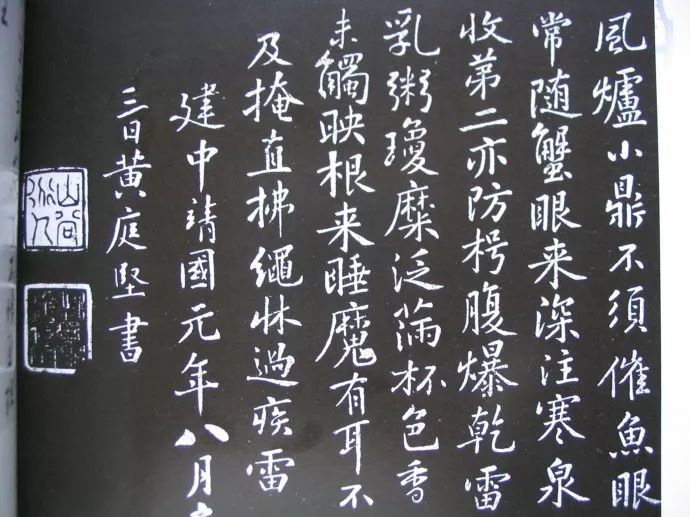 風爐小鼎不須催魚眼
常随蟹眼来深注寒泉
收第二亦防枵腹爆乾雷
乳粥瓊糜泛滿杯色香
未觸映根来睡魔有耳不
及掩直拂繩牀過疾雷
建中靖國元年八月
三日黄庭堅書
山谷